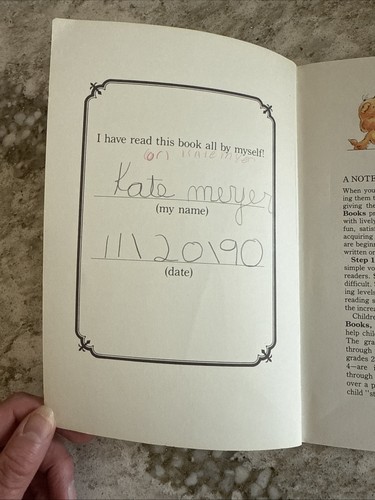 I have read this book all by myself!
Kate meyer
(my name)
11\20\90
(date)
A NOTE
When you
ing them t
giving the
Books p
with livel
fun, satis
acquiring
are begin
written o
Step 1
simple vo
readers. S
difficult.
ing levels
reading s
the increa
Childre
Books,
help chil
The gra
through
grades 2
4—are i
through
over a p
child "s